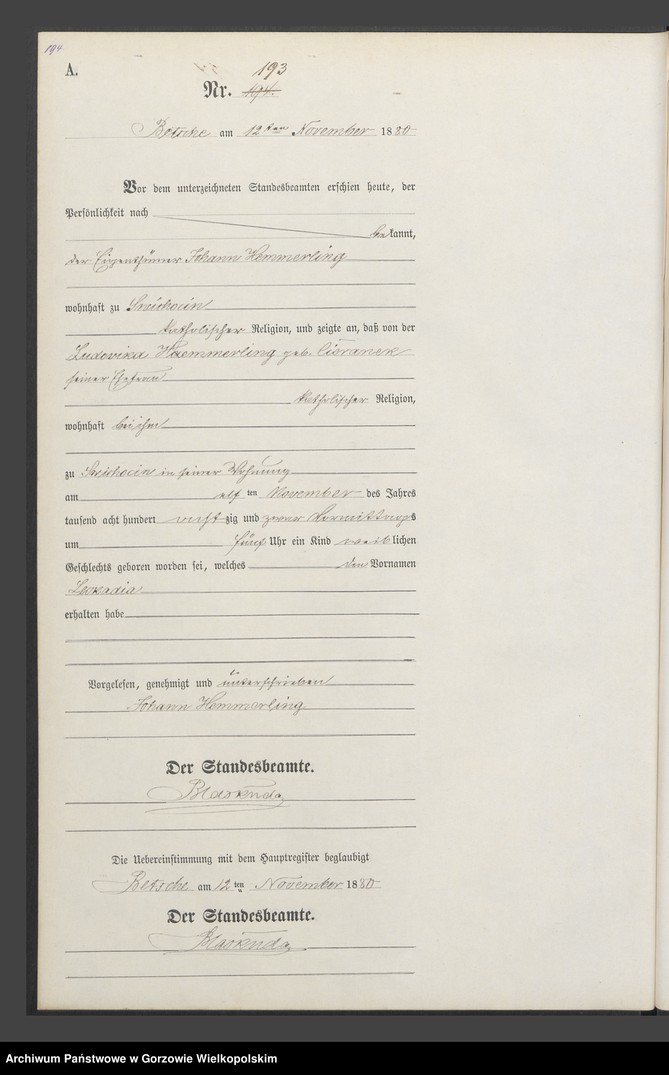 194
A.
193
Nr. 194.
Betsche am 12ten November 1880
Vor dem unterzeichneten Standesbeamten erschien heute, der
Persönlichkeit nach
bekannt,
der Eigenthümer Johann Hemmerling
wohnhaft zu
katholischer Religion, und zeigte an, daß von der
Ludovika Haemmerling geb. Cioranek
seiner Ehefrau
katholischer Religion,
wohnhaft bei ihm
zu in seiner Wohnung
am elf ten November des Jahres
tausend acht hundert achtzig und zwar Vormittags
um fünf Uhr ein Kind weiblichen
Geschlechts geboren worden sei, welches den Vornamen
Leokadia
erhalten habe
Vorgelesen, genehmigt und unterschrieben
Johann Hemmerling
Der Standesbeamte.
Die Uebereinstimmung mit dem Hauptregister beglaubigt
Betsche am 12ten November 1880
Der Standesbeamte.
Archiwum Państwowe w Gorzowie Wielkopolskim